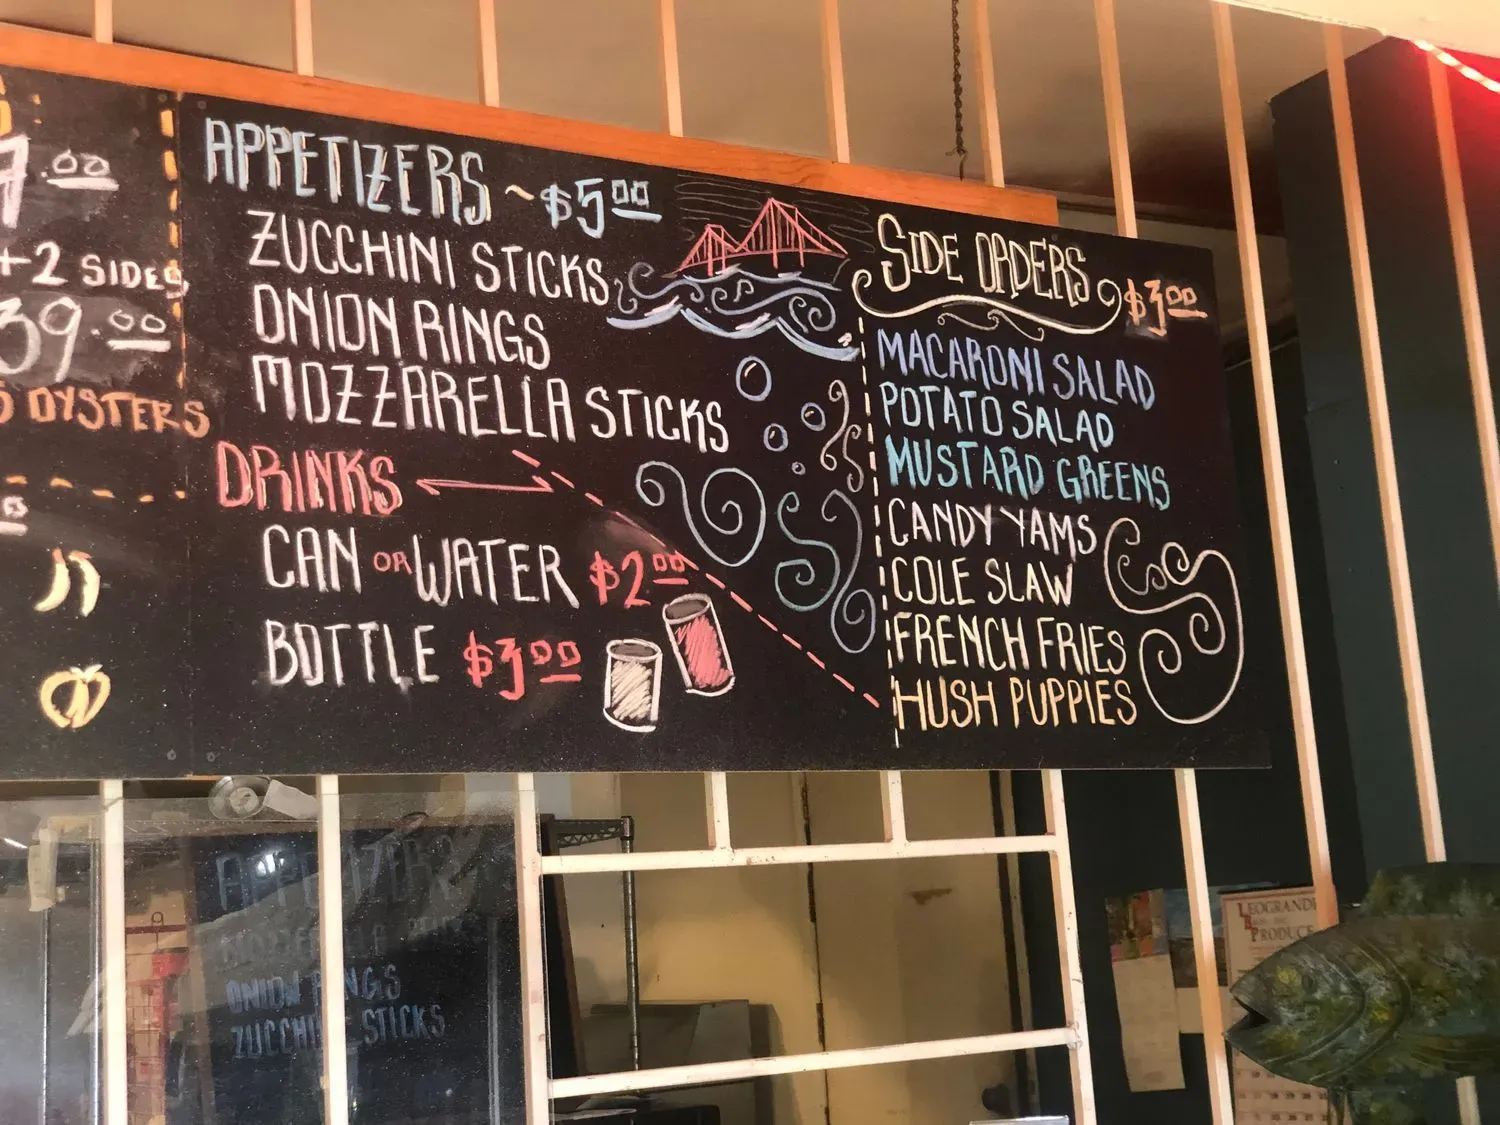 .00
+2 SIDES
39.00
OYSTERS
APPETIZERS ~ $5.00
ZUCCHINI STICKS
ONION RINGS
MOZZARELLA STICKS
DRINKS
CAN OR WATER $2.00
BOTTLE $3.00
SIDE ORDERS $3.00
MACARONI SALAD
POTATO SALAD
MUSTARD GREENS
CANDY YAMS
COLE SLAW
FRENCH FRIES
HUSH PUPPIES
APPETIZERS
ONION RINGS
ZUCCHINI STICKS
PRODUCE